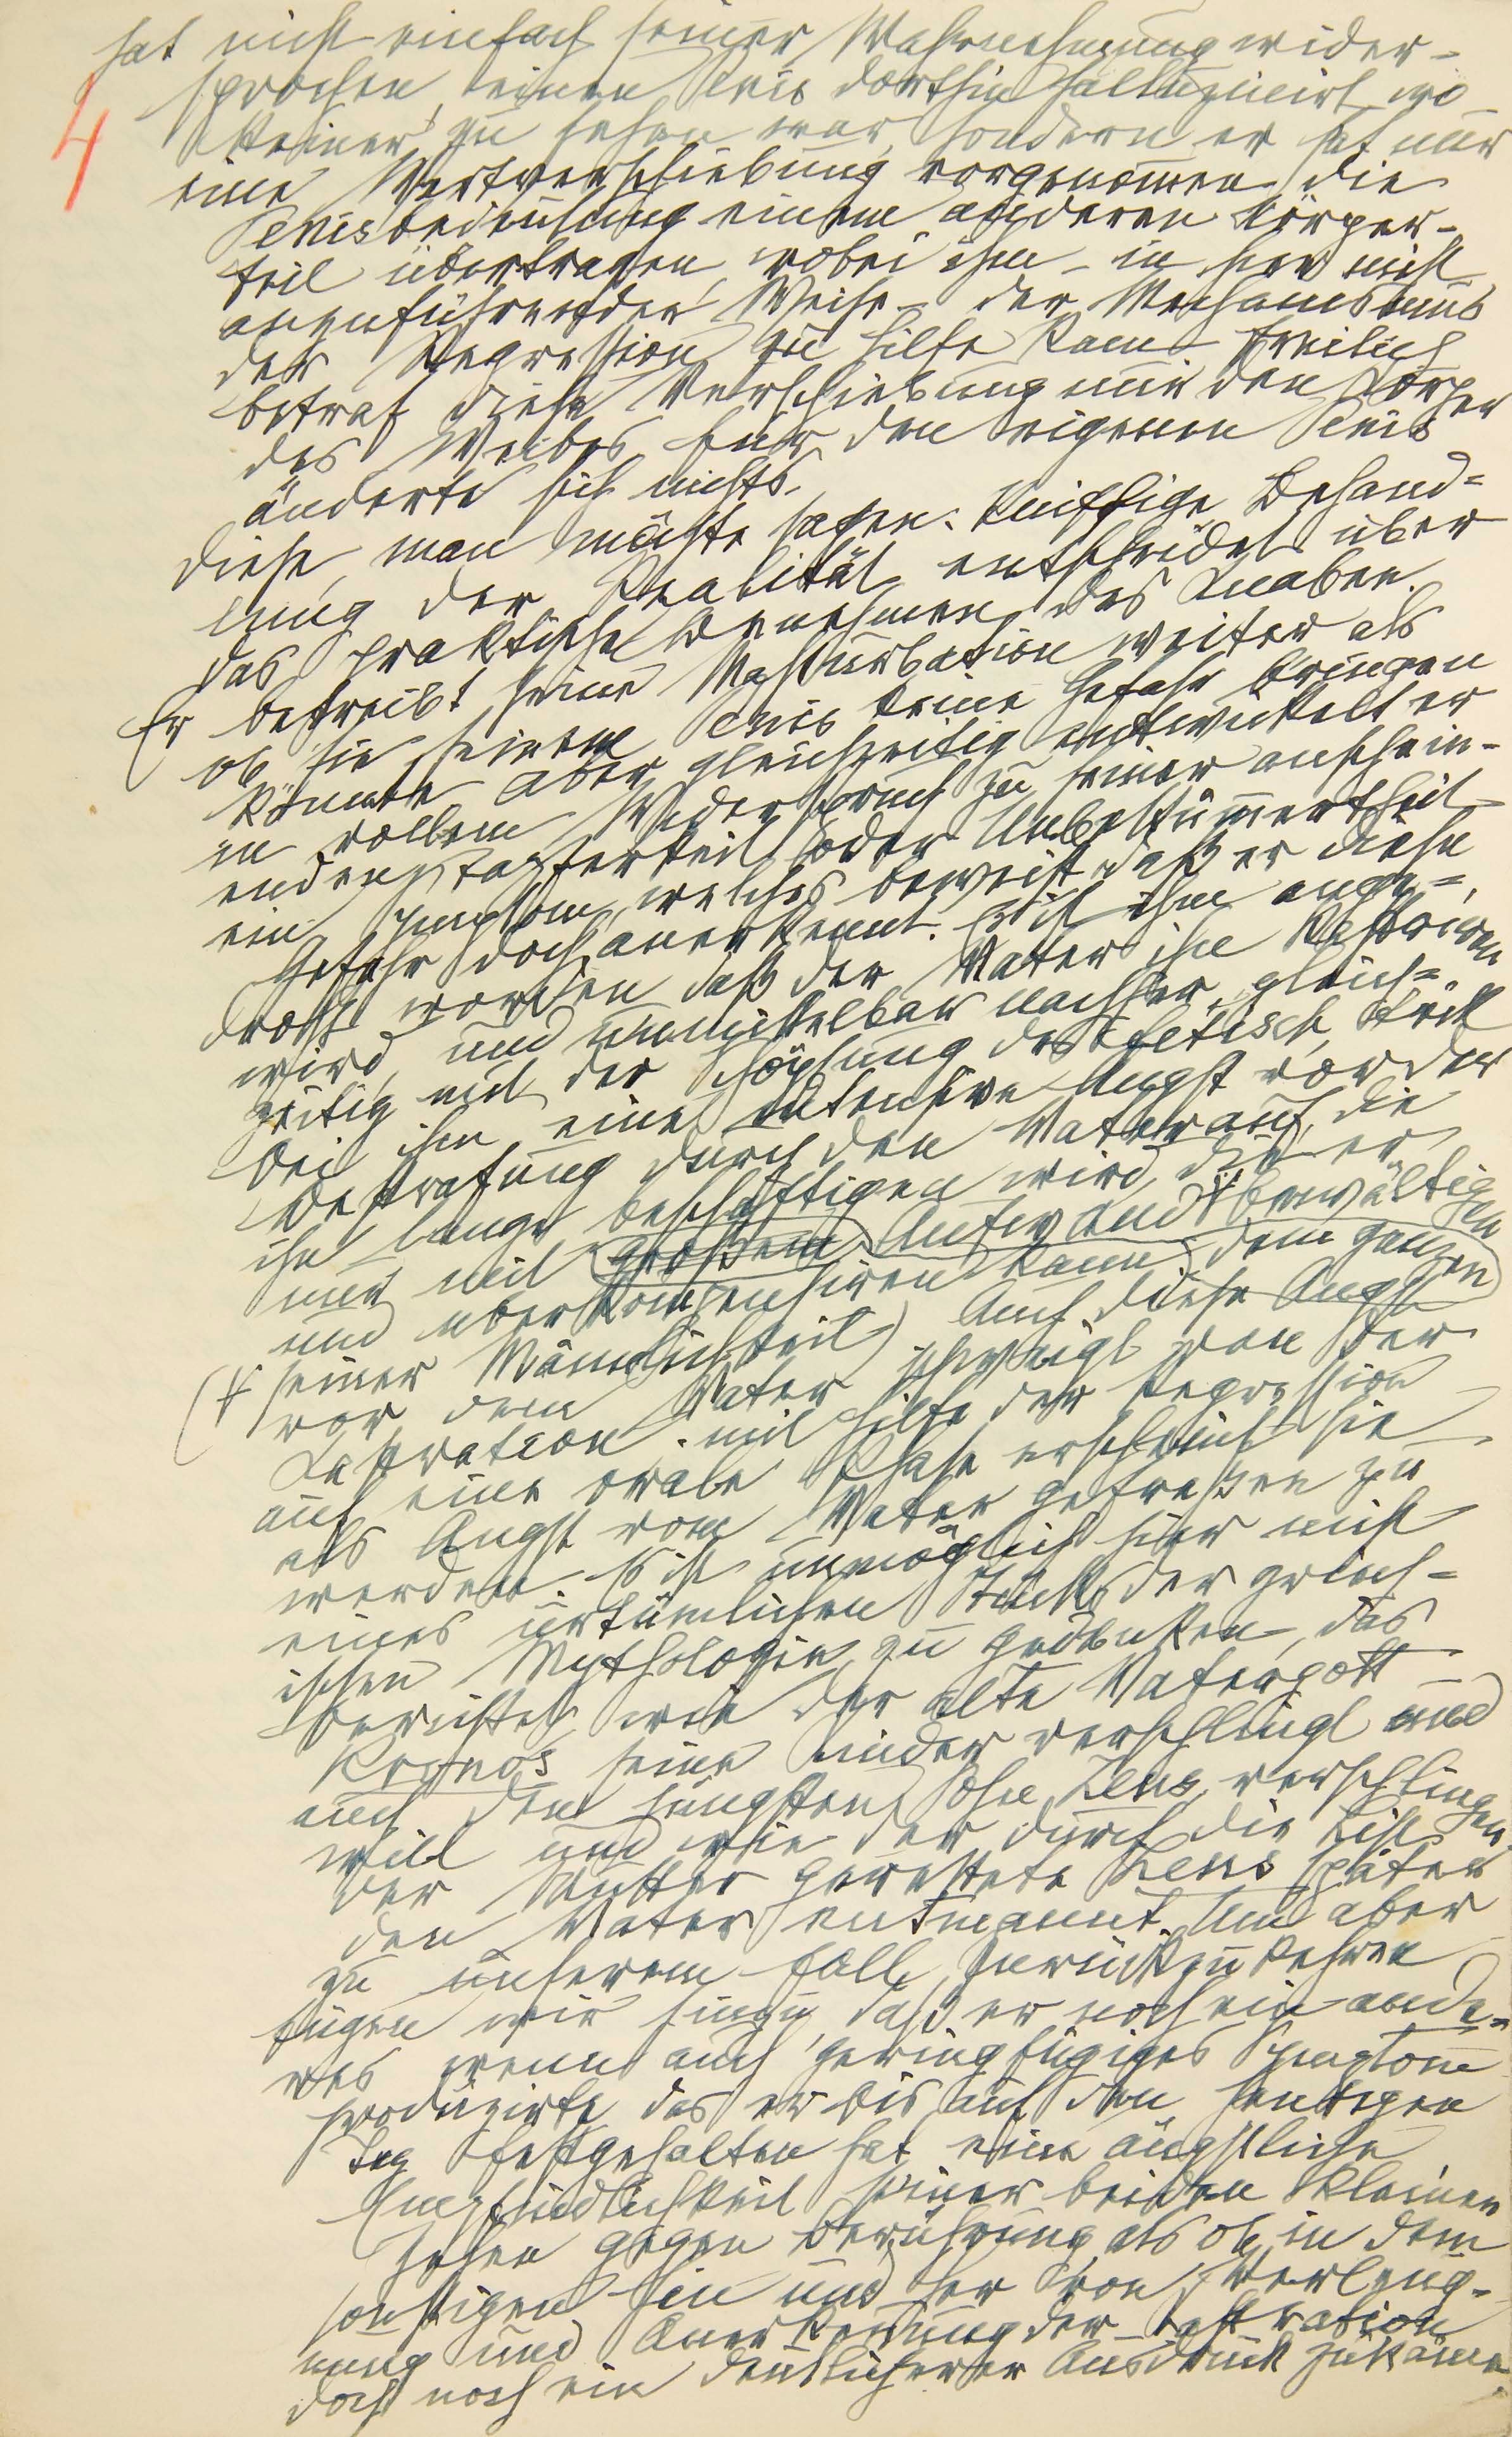 4
hat nicht einfach seiner Wahrnehmung wider-
sprochen, einen Penis dorthin halluzinirt, wo
keiner zu sehen war, sondern er hat nur
eine Wertverschiebung vorgenom̄en, die
Penisbedeutung einem anderen Körper-
teil übertragen, wobei ihm – in hier nicht
anzuführender Weise – der Mechanismus
der Regression zu Hilfe kam. Freilich
betraf diese Verschiebung nur den Körper
des Weibes, für den eigenen Penis
änderte sich nichts.
Diese, man möchte sagen: kniffige Behand=
lung der Realität entscheidet über
das praktische Benehmen des Knaben.
Er betreibt seine Masturbation weiter als
ob sie seinem Penis keine Gefahr bringen
könnte aber gleichzeitig entwickelt er
in vollem Widerspruch zu seiner anschein-
enden Tapferkeit oder Unbeküm̄ertheit
ein Symptom, welches beweist daß er diese
Gefahr doch anerkennt. Es ist ihm ange=
droht worden daß der Vater ihn kastriren
wird, und unmittelbar nachher, gleich=
zeitig mit der Schöpfung des Fetisch, tritt
bei ihm eine intensive Angst vor der
Bestrafung durch den Vater auf, die
ihn lange beschäftigen wird, die er
nur mit großem Aufwand bewältigen
und überkompensiren kann. dem ganzen
(† seiner Männlichkeit) Auch diese Angst
vor dem Vater schweigt von der
Kastration. mit Hilfe der Regression
auf eine orale Phase erscheint sie
als Angst vom Vater gefressen zu
werden. Es ist unmöglich hier nicht
eines urtümlichen Stücks der griech=
ischen Mythologie zu gedenken, das
berichtet wie der alte Vatergott
Kronos seine Kinder verschlingt und
auch den jüngsten Sohn Zeus verschlingen
will und wie der durch die List
der Mutter gerettete Zeus später
den Vater entmannt. Um aber
zu unserem Fall zurückzukehren
fügen wir hinzu, daß er noch ein ande=
res wenn auch geringfügiges Symptom
produzirte, das er bis auf den heutigen
Tag festgehalten hat, eine ängstliche
Empfindlichkeit seiner beiden kleinen
Zehen gegen Berührung, als ob in dem
sonstigen Hin und Her von Verleug-
nung und Anerkennung der Kastration
doch noch ein deutlicherer Ausdruck zukäme.